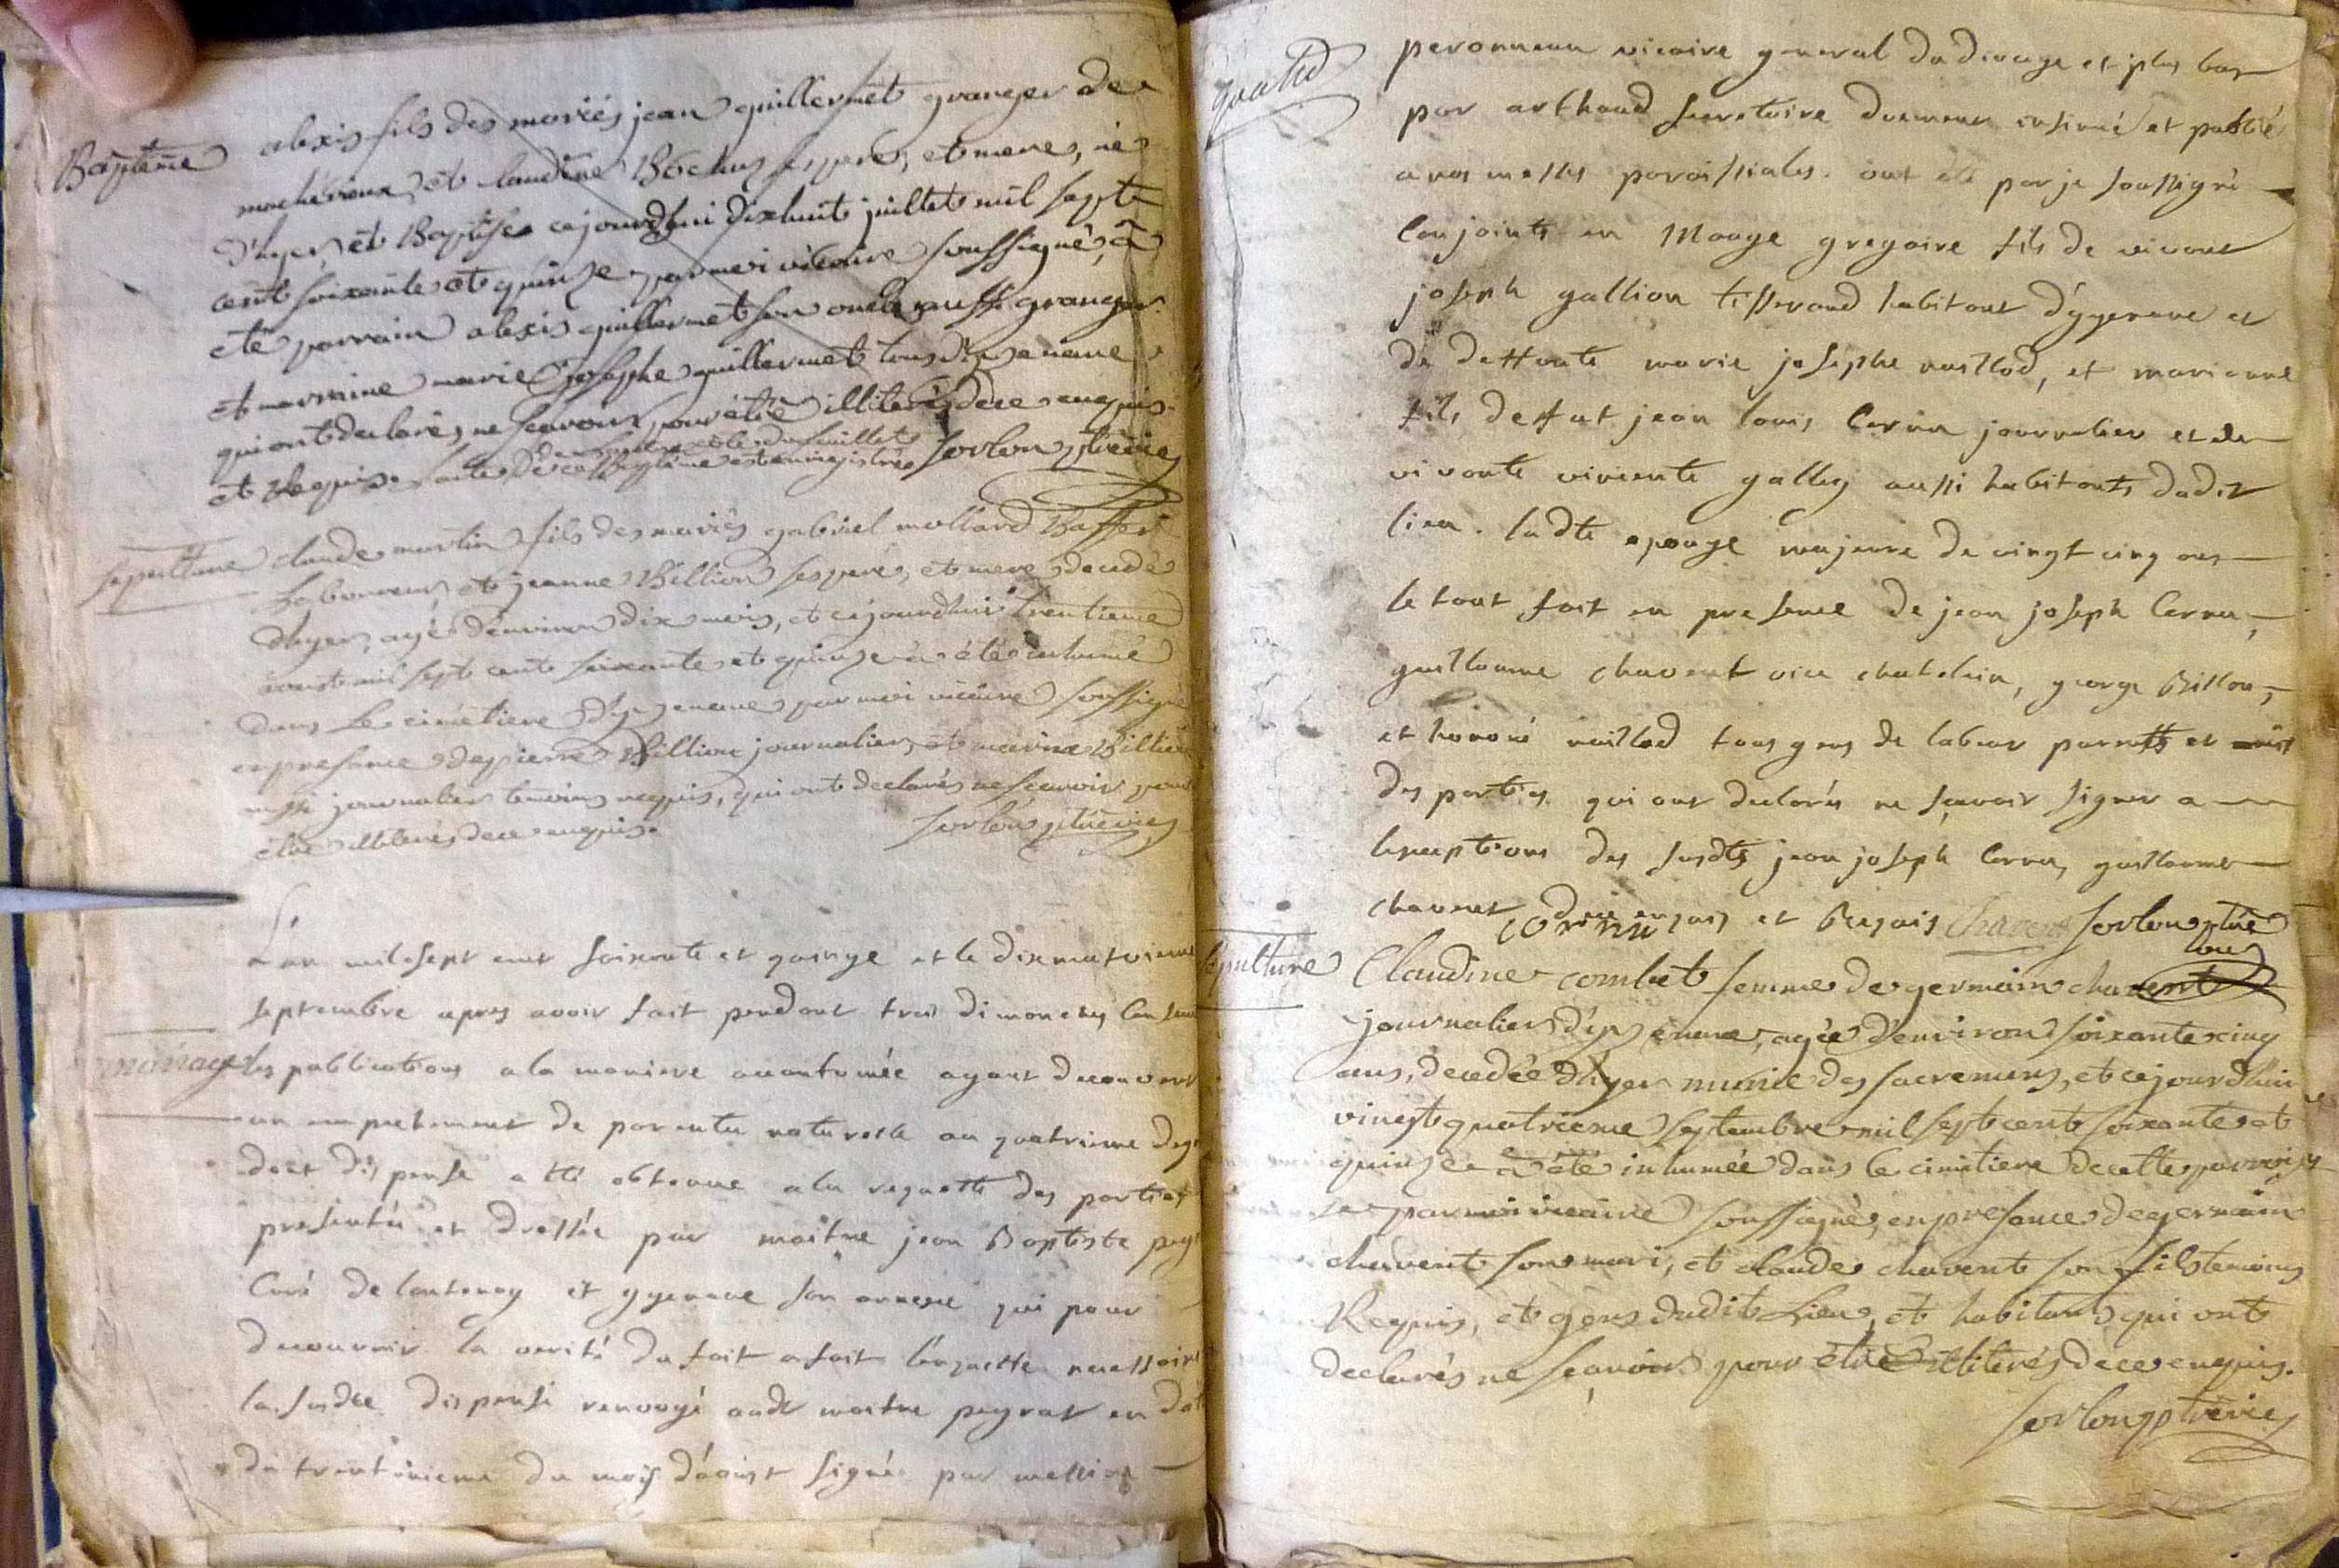 Baptême
alexis fils des mariés jean guillermet granger de
et claudine Bochus ses pere, et mere, né
d'hyer, et Baptisé cejourdhui dixhuit juillet mil sept
cent soixante et quinze par moi vicaire soussigné, a
été parrain alexis guillermet son oncle aussi granger
et marraine marie josephe guillermet tous d'ygenave
qui ont declarés ne scavoir pour être illiterés de ce enquis
et Requis. Sorlon ptre vic
sepulture
claude martin fils des mariés gabriel mollard Baffert
Laboureur, et jeanne Billion ses pere, et mere decedé
d'hyer, agé d'environ dix mois, et cejourdhui trentieme
aoust mil sept cent soixante et quinze a été inhumé
dans Le cimetiere d'ygenave par moi vicaire soussigné
en presence de pierre Billion journalier, et Billion
aussi journalier temoins requis, qui ont declarés ne scavoir pour
etre illiterés de ce enquis.
Sorlon ptre vic
L'an mil sept cent soixante et quinze et le
septembre apres avoir fait pendant trois dimanches
mariage
les publications a la maniere accoutumée ayant decouvert
un empechement de parenté naturelle au quatrieme
dont dispense a été obtenue a la requette des parties
presentée et dressée par maitre jean Baptiste
Curé de lantenay et ygenave son annexe qui pour
decouvrir la verité du fait a fait l'enquette necessaire
la susdte dispense renvoyé audt maitre peyrat en
du mois d'aoust signée par messire
peronneau vicaire general du dioceze et plus bas
par arthaud secretaire duement insinué et publié
a nos messes paroissiales. ont été par je soussigné
Conjoints en Mariage gregoire fils de vivant
joseph gallion tisserand habitant d'ygenave et
de deffunte marie josephe vuillod, et marianne
fille deffut jean louis Cornu journalier et de
vivante vincente galley aussi habitants dudit
lieu. ladte epouze majeure de vingt cinq ans
le tout fait en presence de jean joseph Cornu,
guillaume chavent vice chatelain, george Billon,
et honoré vuillod tous gens de labeur parents et amis
des parties qui ont declarés ne sçavoir signer a
lexeptions des susdts jean joseph Cornu, guillaume
chavent de ce enquis et Requis Chavent Sorlon ptre
cornu
vic
sepulture
Claudine combet femme de germain chavent
journalier d'ygenave, agée d'environ soixante cinq
ans, decedée d'hyer munie des sacremens, et cejourdhui
vingt quatrieme septembre mil sept cent soixante et
quinze a été inhumée dans le cimetiere de cette parrois
se par moi vicaire soussigné, en presence de germain
chavent son mari, et claude chavent son fils temoins
Requis, et gens dudit Lieu, et habitans qui ont
declarés ne sçavoir pour être illiterés de ce enquis.
Sorlon ptre vic